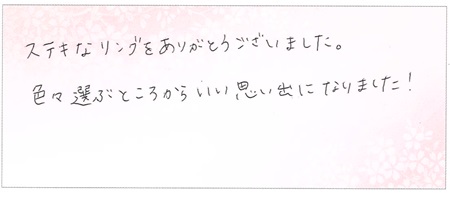 ステキなリングをありがとうございました。
色々選ぶところからいい思い出になりました!